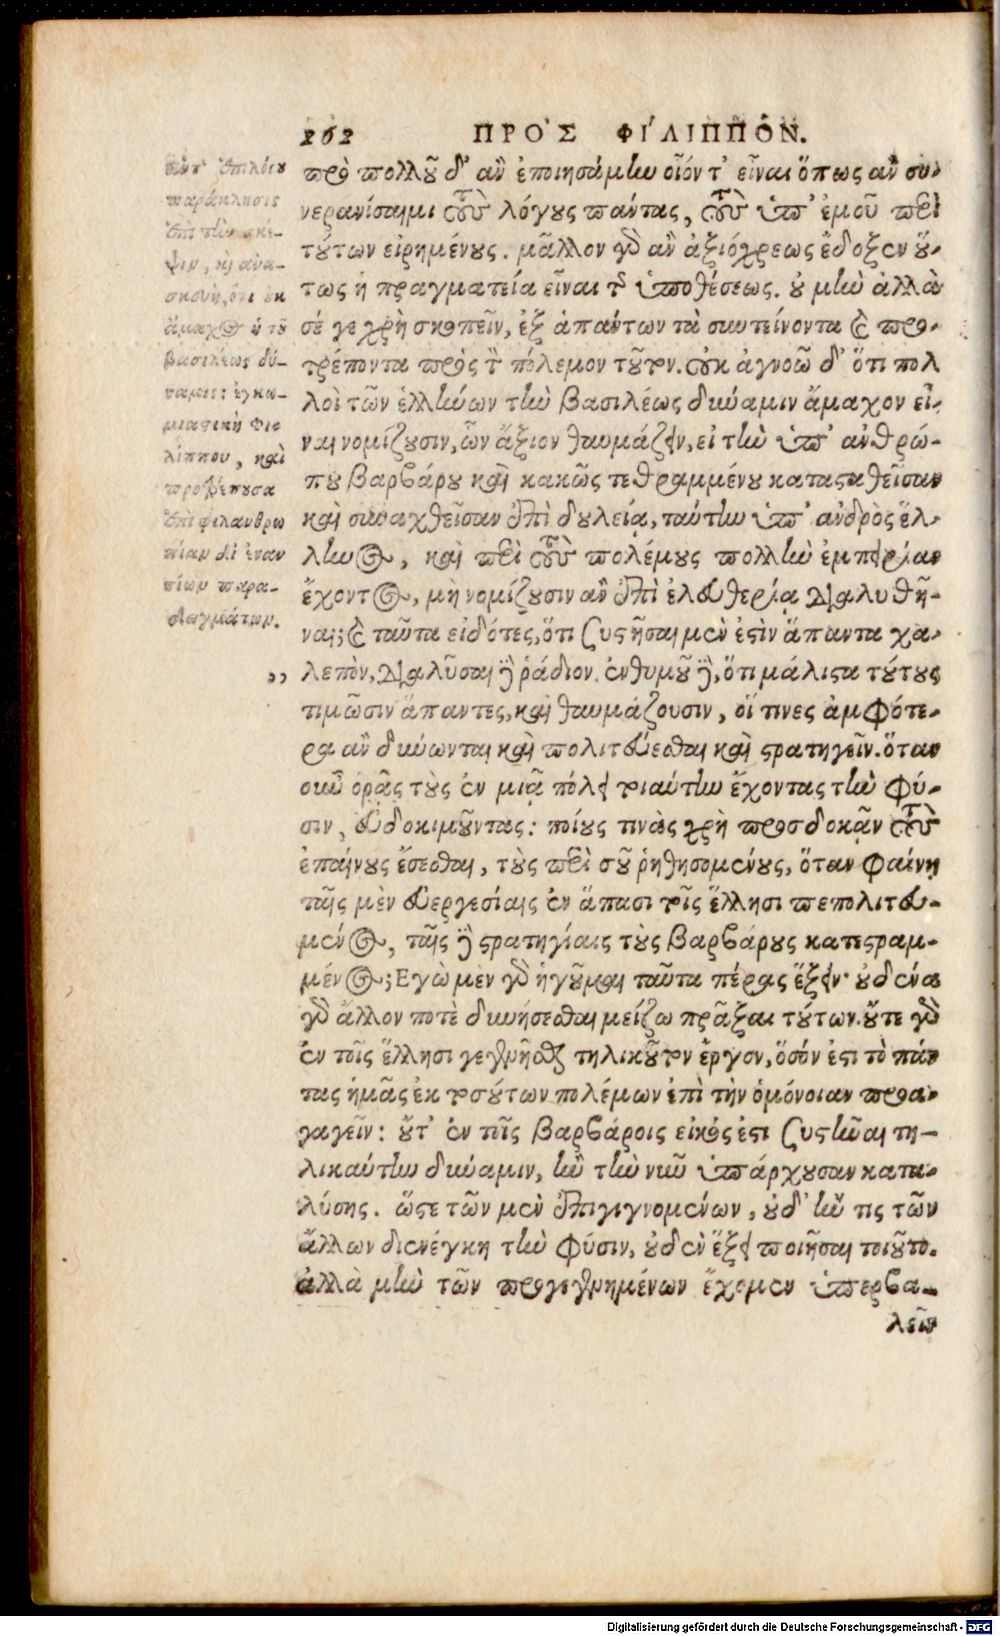 262 ΠΡΟ῀Σ ΦΙ΄ΛΙΠΠΟΝ.
παράκλησις
ἐπὶ τὴν σκέ-
ψιν, καὶ ἀνα-
σκευὴ, ὅτι ἐκ
ἄμαχος ἡ τοῦ
βασιλέως δύ-
ναμις: ἐγκω-
μιαστικὴ Φι-
λίππου, καὶ
προτρέπουσα
ἐπὶ φιλανθρω
πίαν δι' ἐναν
τίων παρα-
δειγμάτων.
πρὸ πολλοῦ δ' ἂν ἐποιησάμην οἷόν τ' εἶναι ὅπως ἂν συ-
νερανίσαιμι τοὺς λόγους πάντας, τοὺς ὑπ' ἐμοῦ περὶ
τούτων εἰρημένους. μᾶλλον γὰρ ἂν ἀξιόχρεως ἔδοξεν οὕ-
τως ἡ πραγματεία εἶναι τῆς ὑποθέσεως. οὐ μὴν ἀλλὰ
σέ γε χρὴ σκοπεῖν, ἐξ ἁπάντων τὰ συντείνοντα καὶ προ-
τρέποντα πρὸς τὸν πόλεμον τοῦτον. οὐκ ἀγνοῶ δ' ὅτι πολ
λοὶ τῶν ἑλλήνων τὴν βασιλέως δύναμιν ἄμαχον εἶ-
ναι νομίζουσιν, ὧν ἄξιον θαυμάζειν, εἰ τὴν ὑπ' ἀνθρώ-
που βαρβάρου καὶ κακῶς τεθραμμένου κατασταθεῖσαν
καὶ συναχθεῖσαν ἐπὶ δουλείᾳ, ταύτην ὑπ' ἀνδρὸς ἕλ-
ληνος, καὶ περὶ τοὺς πολέμους πολλὴν ἐμπειρίαν
ἔχοντος, μὴ νομίζουσιν ἂν ἐπὶ ἐλευθερίᾳ διαλυθῆ-
ναι; καὶ ταῦτα εἰδότες, ὅτι συστῆσαι μὲν ἐστὶν ἅπαντα χα-
,, λεπὸν, διαλῦσαι δὲ ῥάδιον. ἐνθυμοῦ δὲ, ὅτι μάλιστα τούτους
τιμῶσιν ἅπαντες, καὶ θαυμάζουσιν, οἵ τινες ἀμφότε-
ρα ἂν δύνωνται καὶ πολιτεύεσθαι καὶ στρατηγεῖν. ὅταν
οὖν ὁρᾷς τοὺς ἐν μιᾷ πόλει τοιαύτην ἔχοντας τὴν φύ-
σιν, εὐδοκιμοῦντας: ποίους τινὰς χρὴ προσδοκᾷν τοὺς
ἐπαίνους ἔσεσθαι, τοὺς περὶ σοῦ ῥηθησομένους, ὅταν φαίνῃ
ταῖς μὲν εὐεργεσίαις ἐν ἅπασι τοῖς ἕλλησι πεπολιτευ-
μένος, ταῖς δὲ στρατηγίαις τοὺς βαρβάρους κατεστραμ-
μένος; Εγὼ μὲν γὰρ ἡγοῦμαι ταῦτα πέρας ἕξειν· οὐδένα
γὰρ ἄλλον ποτὲ δυνήσεσθαι μείζω πρᾶξαι τούτων. οὔτε γὰρ
ἐν τοῖς ἕλλησι γενέσθαι τηλικοῦτον ἔργον, ὅσόν ἐστι τὸ πάν
τας ἡμᾶς ἐκ τοσούτων πολέμων ἐπὶ τὴν ὁμόνοιαν προα-
γαγεῖν: οὔτ' ἐν τοῖς βαρβάροις εἰκός ἐστι συστῆναι τη-
λικαύτην δύναμιν, ἢν τὴν νῦν ὑπάρχουσαν κατα-
λύσῃς. ὥστε τῶν μὲν ἐπιγιγνομένων, οὐδ' ἤν τις τῶν
ἄλλων διενέγκῃ τὴν φύσιν, οὐδὲν ἕξει ποιῆσαι τοιοῦτο.
ἀλλὰ μὴν τῶν προγεγενημένων ἔχομεν ὑπερβα-
λεῖν
Digitalisierung gefördert durch die Deutsche Forschungsgemeinschaft - DFG